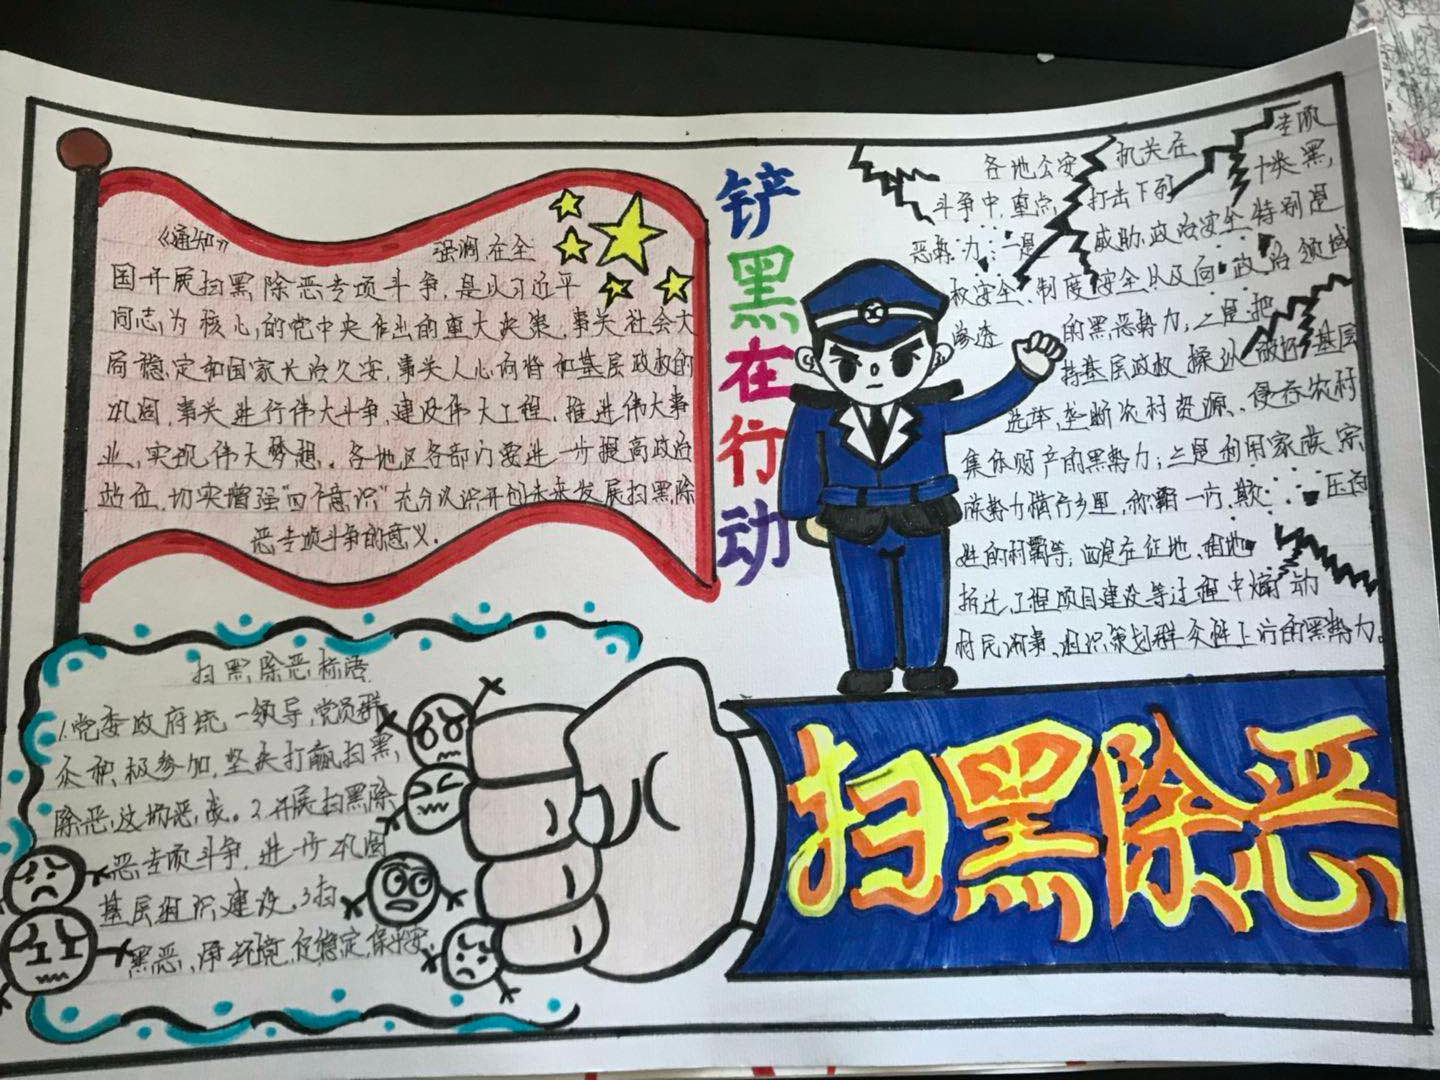 《通知》 强调,在全
国开展扫黑除恶专项斗争,是以习近平
同志为核心的党中央作出的重大决策,事关社会大
局稳定和国家长治久安,事关人心向背和基层政权的
巩固,事关进行伟大斗争,建设伟大工程,推进伟大事
业,实现伟大梦想。各地区各部门要进一步提高政治
站位,切实增强"四个意识"充分认识开创未来发展扫黑除
恶专项斗争的意义.
铲黑在行动
各地公安机关在专项
斗争中,重点打击下列十类黑,
恶势力:一是威胁政治安全特别是
权安全、制度安全以及向政治领域
渗透的黑恶势力;二是把
持基层政权操纵破坏基层
选举,垄断农村资源、侵吞农村
集体财产的黑势力;三是利用家族宗
族势力横行乡里,称霸一方,欺压百
姓的村霸等;四是在征地、租地
拆迁,工程项目建设等过程中煽动
村民闹事、组织策划群众性上访的黑势力。
扫黑除恶标语
1.党委政府统一领导,党员群
众积极参加,坚决打赢扫黑,
除恶,这场恶战。2.开展扫黑除
恶专项斗争,进一步巩固
基层组织建设。3扫
黑恶、净环境,促稳定,保平安
扫黑除恶